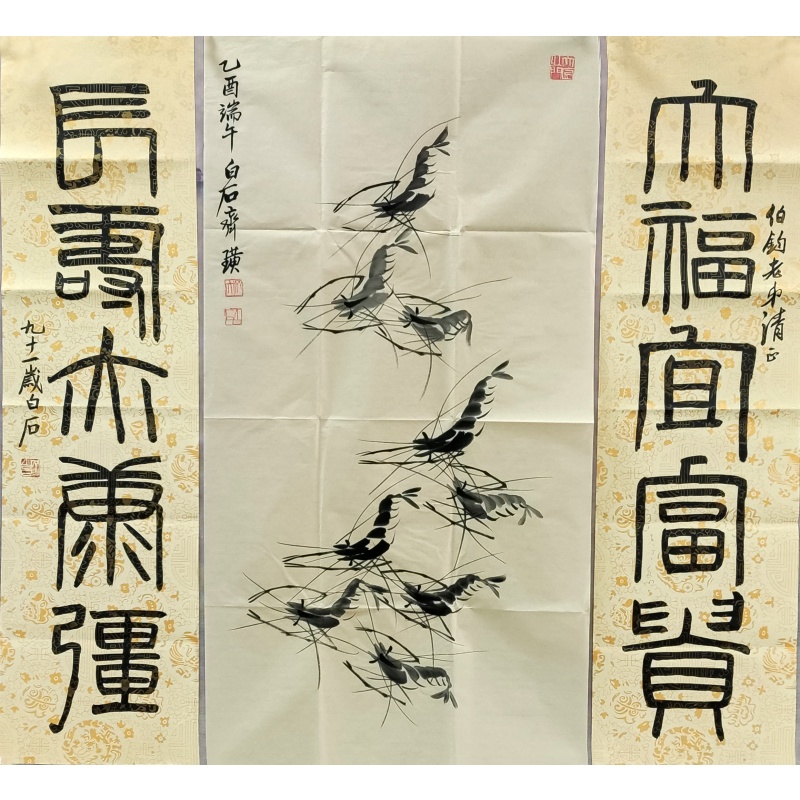 大福宜富貴
伯鈞老弟清正
乙酉端午 白石齊璜
長壽亦康彊
九十一歲白石